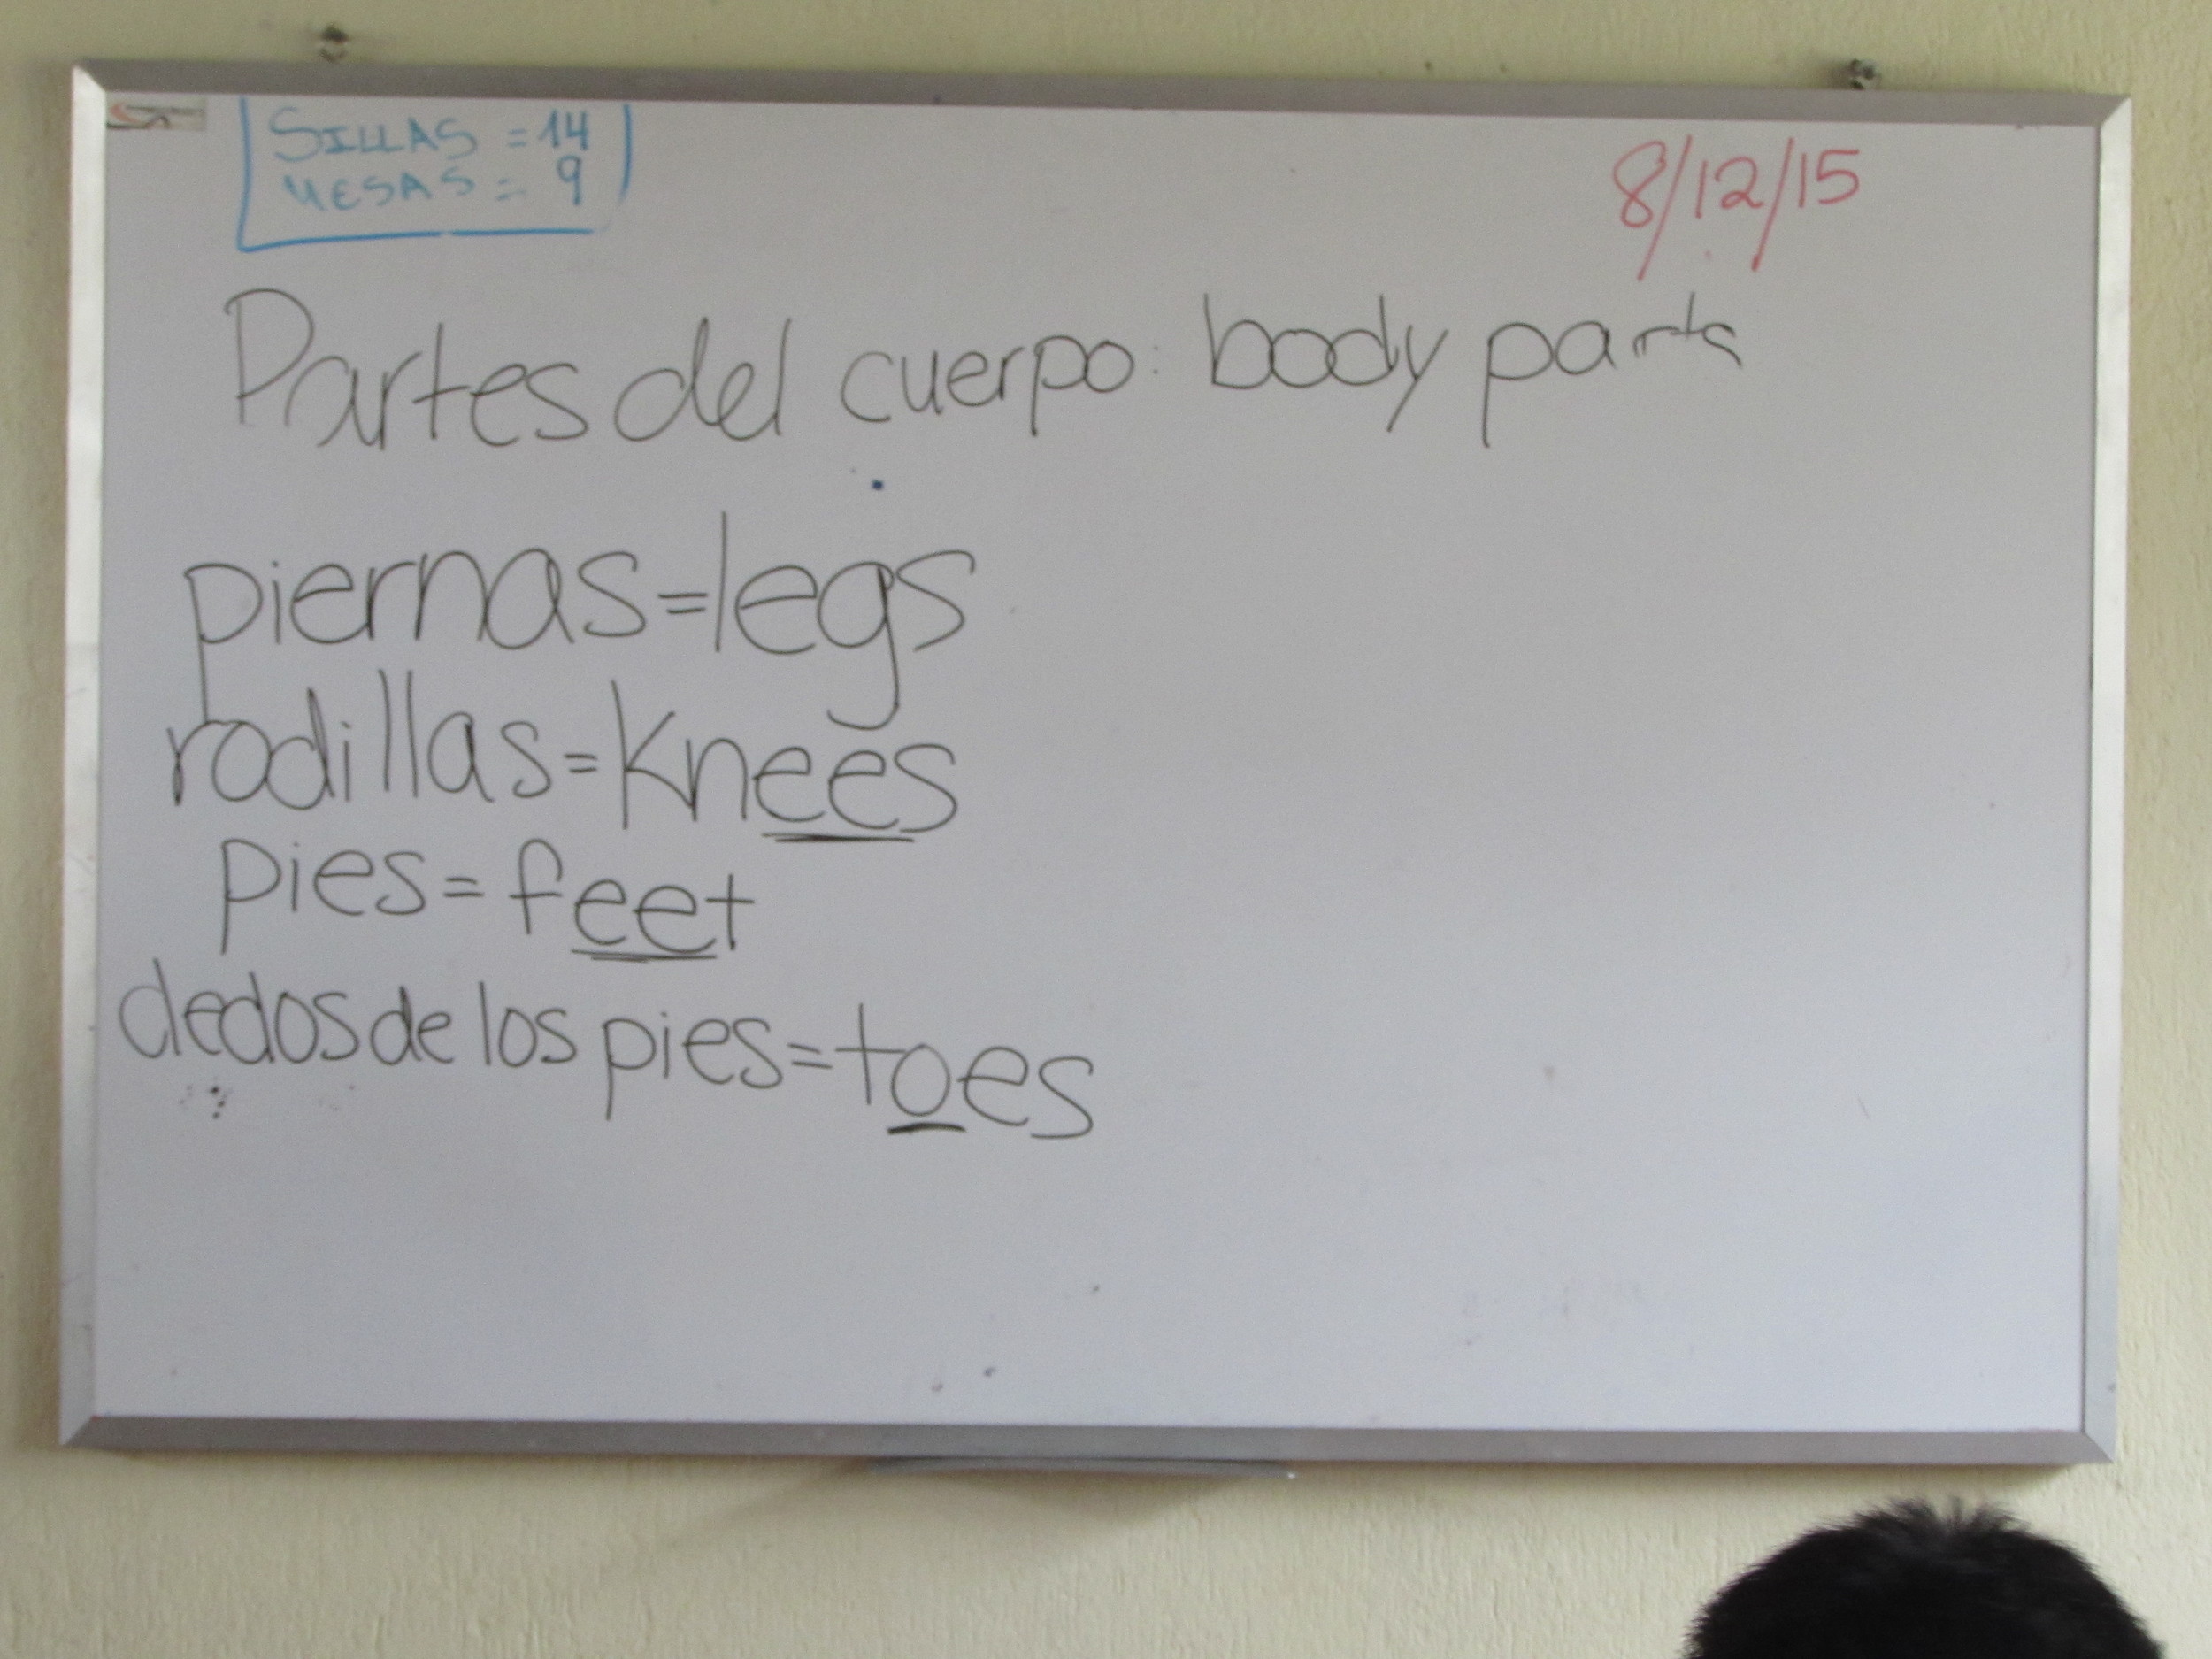 SILLAS = 14
MESAS = 9
8/12/15
Partes del cuerpo: body parts
piernas=legs
rodillas=knees
pies=feet
dedos de los pies=toes